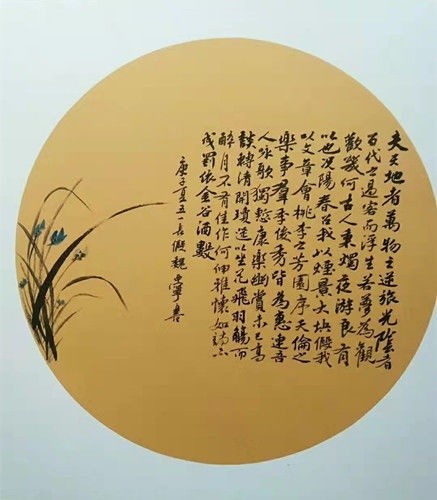 夫天地者萬物之逆旅光陰者
百代之過客而浮生若夢為觀
歡幾何古人秉燭夜游良有
以也況陽春召我以煙景大塊假我
以文章會桃李之芳園序天倫之
樂事羣季俊秀皆為惠連吾
人詠歌獨慙康樂幽賞未已高
談轉清開瓊筵以坐花飛羽觴而
醉月不有佳作何伸雅懷如詩不
成罰依金谷酒數
庚子夏五長假魏寧書